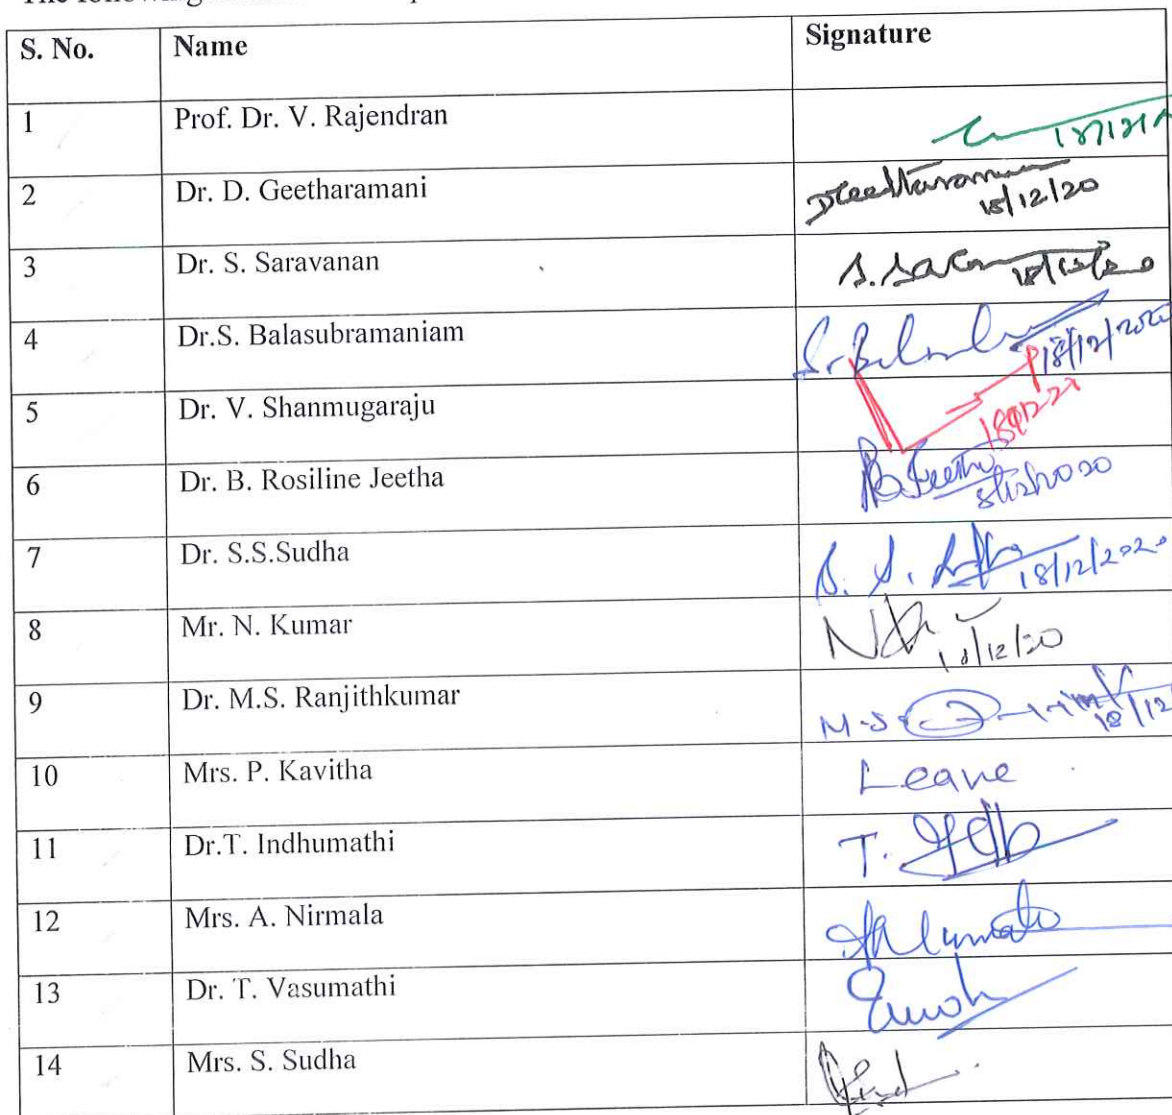 The following
S. No. Name Signature
1 Prof. Dr. V. Rajendran
2 Dr. D. Geetharamani DGeetharamani
18/12/20
3 Dr. S. Saravanan S. Sara 18/12/20
4 Dr.S. Balasubramaniam S. Bala
18/12/2020
5 Dr. V. Shanmugaraju
6 Dr. B. Rosiline Jeetha B. Jeetha
7 Dr. S.S.Sudha S. S. Sudha 18/12/2020
8 Mr. N. Kumar
18/12/20
9 Dr. M.S. Ranjithkumar M.S.
18/12
10 Mrs. P. Kavitha Leave
11 Dr.T. Indhumathi T.
12 Mrs. A. Nirmala
13 Dr. T. Vasumathi
14 Mrs. S. Sudha